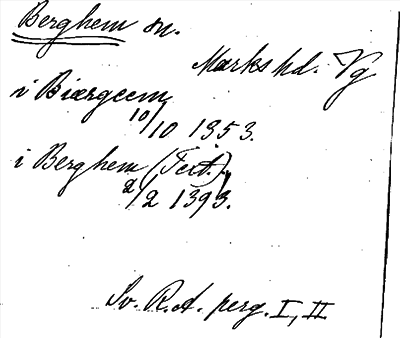 Berghem sn.
Marks hd. Vg
i Biærgeem
10/10 1353.
i Berghem (Text.),
2/2 1393.
Sv. R.A. perg. I, II